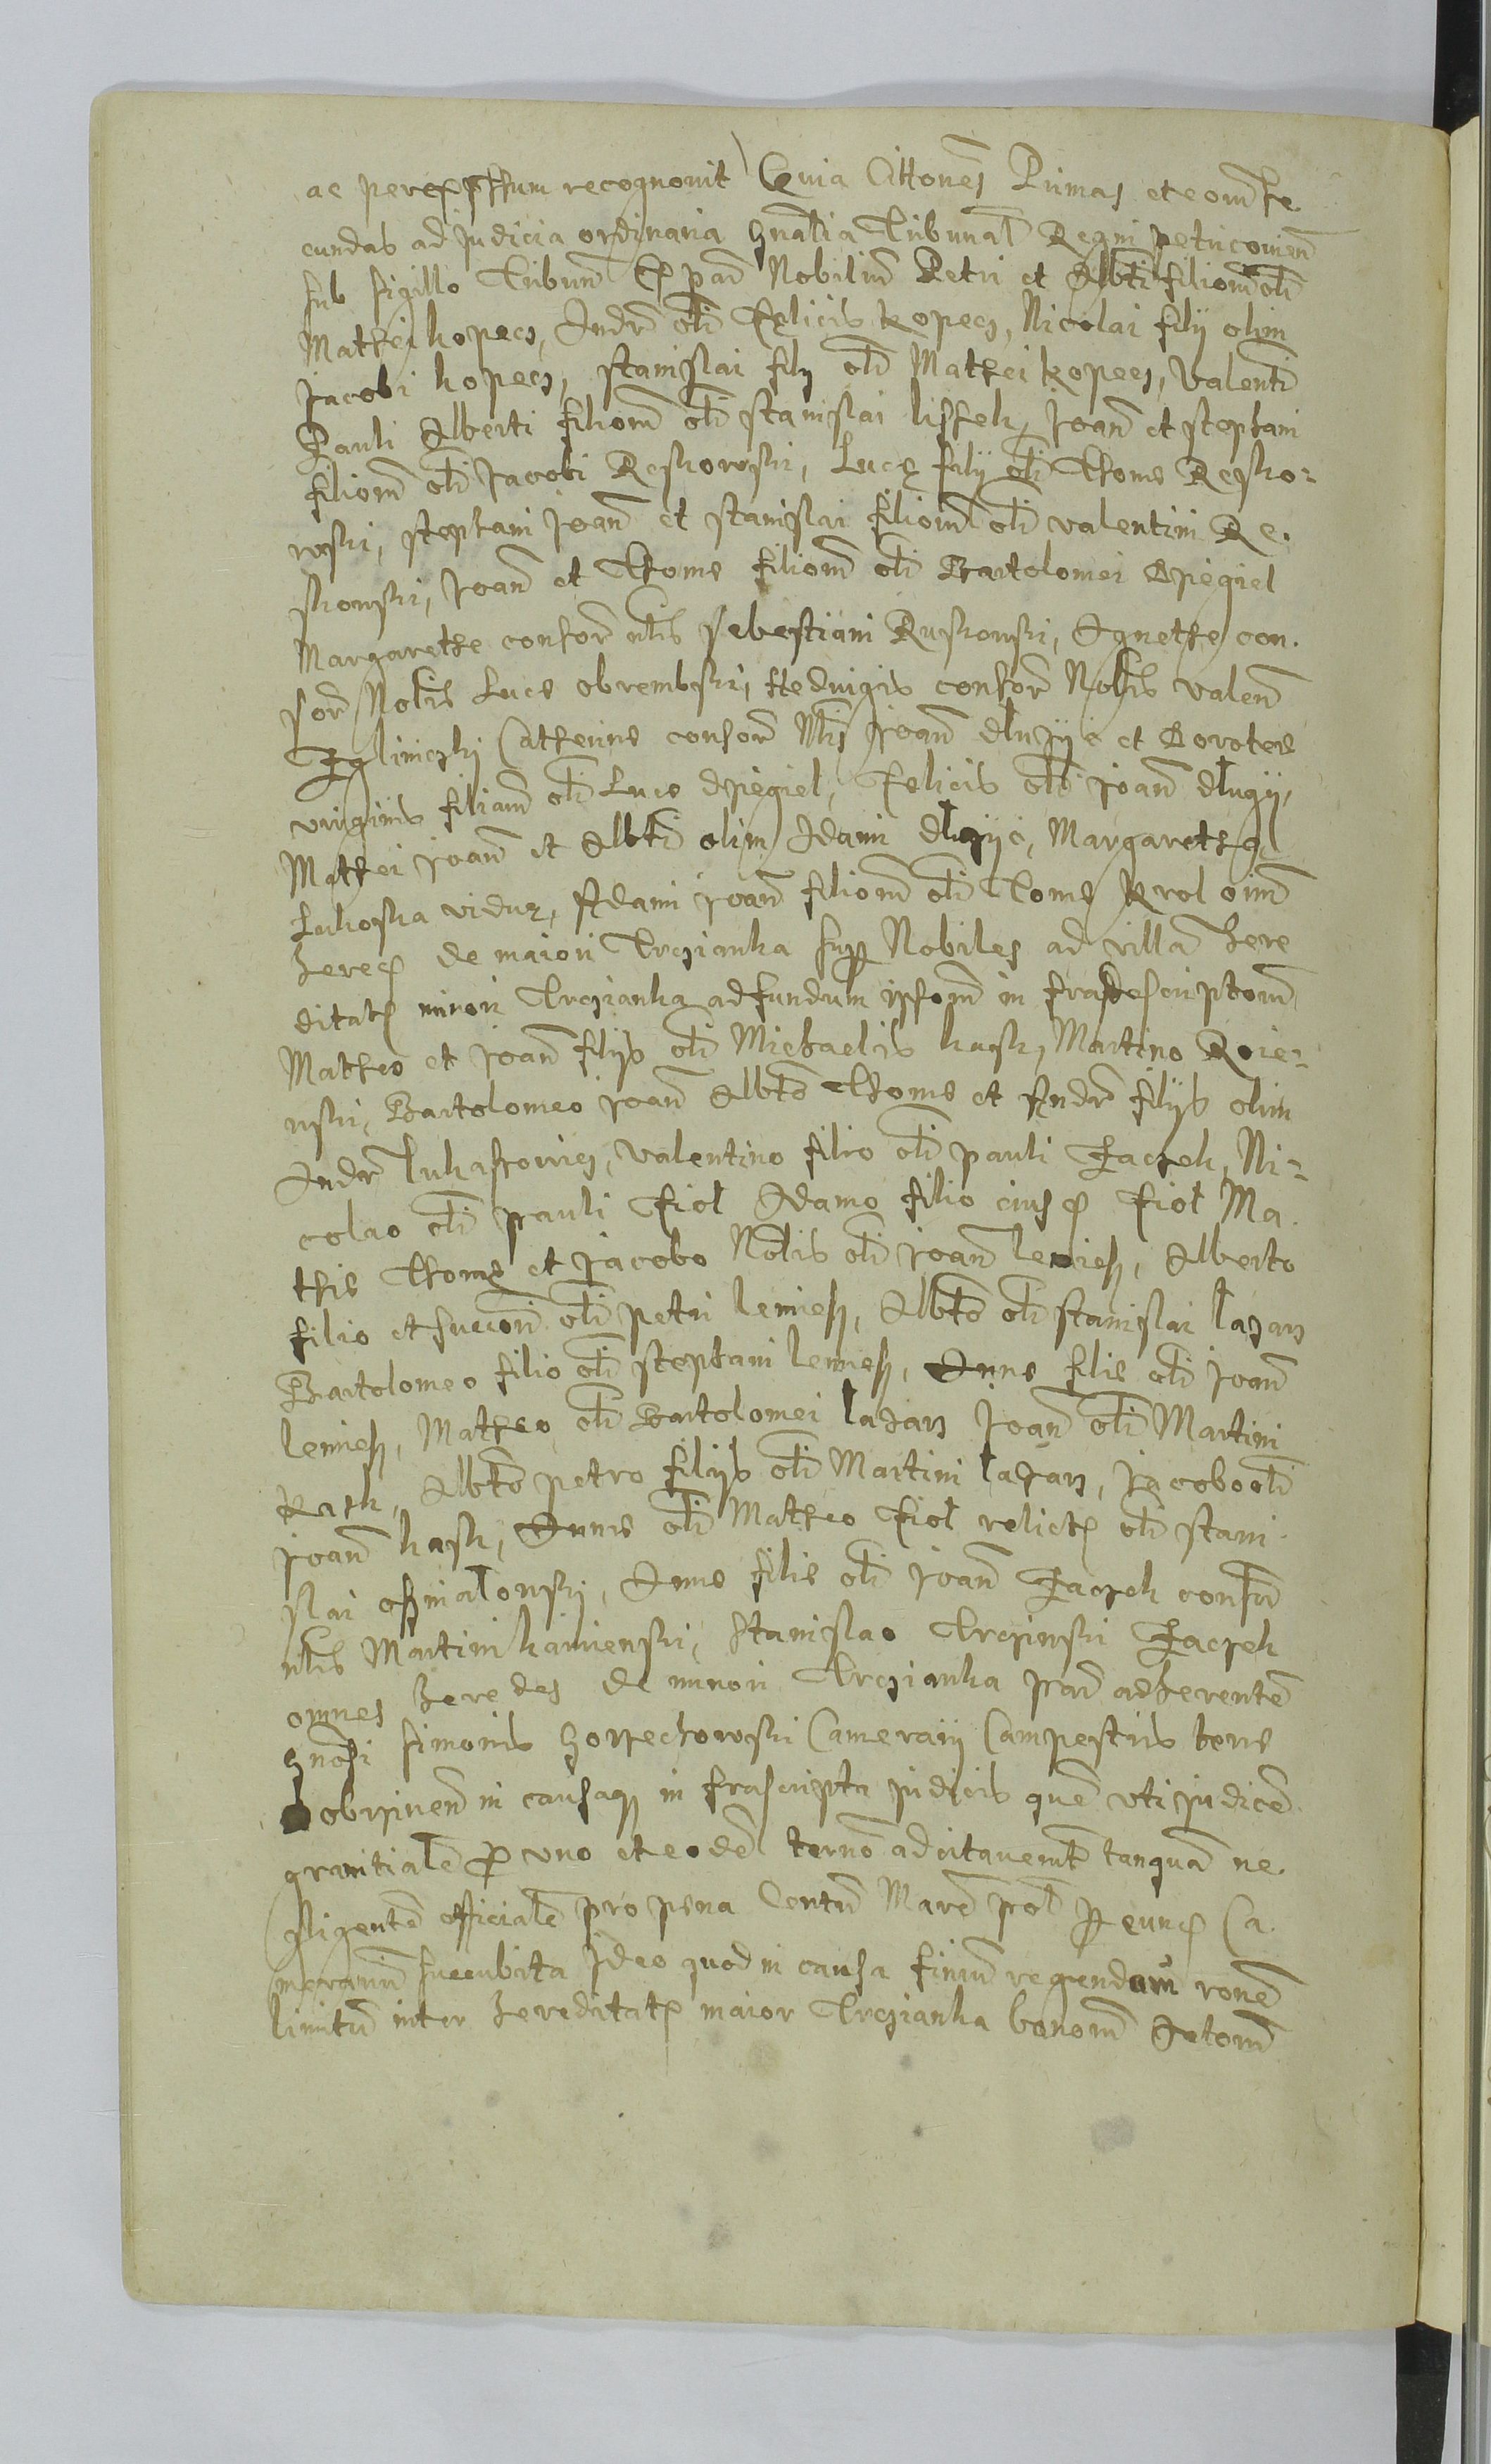 ac per exp̃ssum recognovit Quia Cittones Primas et eom̃ se
cundas ad judicia ordinaria gnãlia Tribunal Regni petricovien̄
sub sigillo Tribun̄ Ex par̄ Nobilium Petri et Albti filiom̃ oli
Mathei kopecz, Andr̄ oli Felicis kopecz, Nicolai filij olim
Jacobi kopecz, stanislai filij oli Mathei kopecz, Valenti
Pauli Alberti filiom̃ oli stanislai Joan̄ et stephani
filiom̃ oli Jacobi Reskowski, Luce filij oli Thome Resko-
wski, stephani Joan̄ et stanislai filiom̃ oli valentini Re.
skowski, Joan̄ et Thome filiom̃ oli Bartolomei Dpiegiel
Margarethe consor̄ nlis sebestiani Ruskowski, Agnethe con.
sor̄ Noblis Luce obrembski, Hedvigis consor̄ Noblis valen̄
Zglinczki Catherine consor̄ Nlis Joan̄ dlugij et Dorotee
virginis filiam̃ oli Luce dpiegiel, Felicis oli Joan̄ dlugij,
Mathei Joan̄ et Albti olim Adami dlugij, Margaretha
Lukoska vidue, Adami Joan̄ filiom̃ oli Tome krol oim̃
hered de maiori Trczianka supp Nobiles ad villã here
ditatē minori Trczianka ad fundum ipsom̃ in frascriptom̃
Matheo et Joan̄ filijs oli Michaelis kusk, Martino Roie-
wski, Bartolomeo Joan̄ Albto Thome et Andr̄ filijs olim
Andr̄ lukaszowicz, valentino filio oli pauli Zaczek, Ni-
colao oli pauli Fiol Adamo filio eiusd Fiol Ma.
thie Thome et Jacobo Noblis oli Joan̄ lemiesz, Alberto
filio et succori oli petri lemiesz, Albto oli stanislai lazarz
Bartolomeo filio oli stephani lemiesz, Anne filie oli Joan̄
lemiesz, Matheo oli Bartolomei lazarz Joan̄ oli Martini
kask, Albto petro filijs oli Martini lazarz, Jacobo oli
Joan̄ kask, Anne oli Matheo Fiol relictē oli stani.
slai Anne filie oli Joan̄ Zaczek consor̄
nlis Martini kamienski, Stanislao Trczinski Zaczek
omnes heredes de minori Trczianka par̄ adherentē
gnosi simonis Camerarij Campestris terre
Dobrzinen̄ in causaq in frascripta judicis quē uti judicē
granitialē p uno et eodē terno adcitaverunt tanquã ne
gligentē officialē pro pena Centū Marc̄ pol p eund Ca.
merarium succubita Ideo quod in causa finium regendam̃ ronē
limitū inter hereditatē maior Trczianka bonom̃ Actom̃